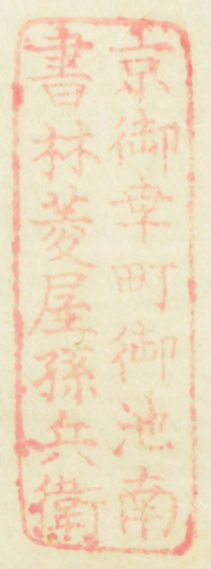 京御幸町御池南
書林菱屋孫兵衛